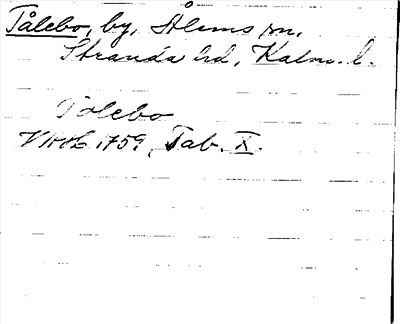 Tålebo, by, Ålems sn,
Stranda hd, Kalm. l.
Tolebo
VHAH 1759, Tab. X.